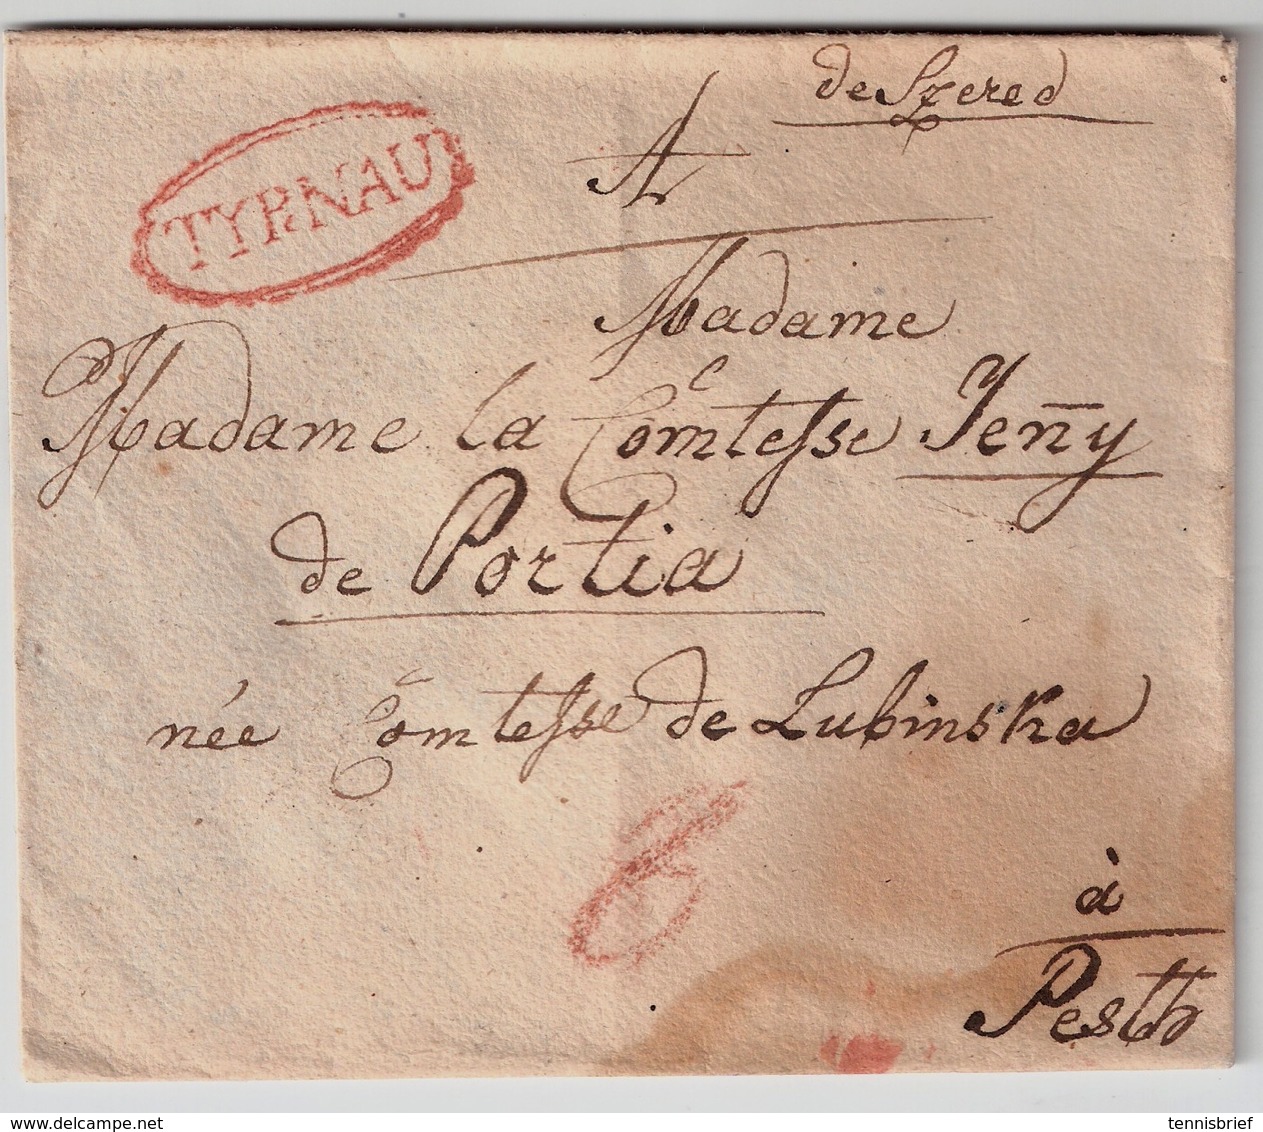 de Szered
TYRNAU
A
Madame
Madame la Comtesse Jen̄y
de Portia
née Comtesse de Lubinska
6
à
Pesth
tennisbrief